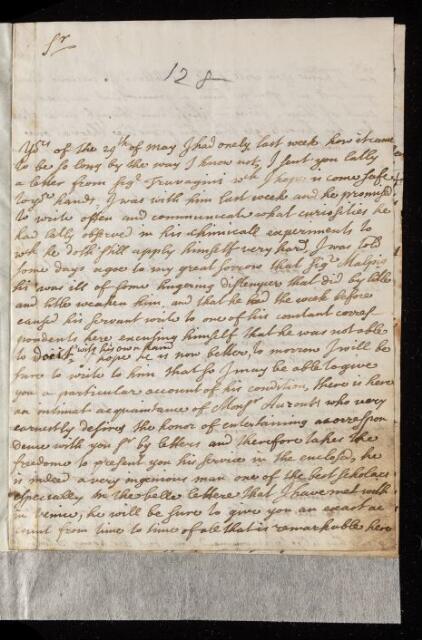 Sr
128
Yors of the 29th of may I had onely last week how it came
to be so long by the way I know not, I sent you lately
a letter from Sigr Travagini wch I hope is come safe
to yor hands. I was with him last week and he promised
to write often and communicate what curiosities he
had lately observed in his chimicall experiments to
wch he doth still apply himself very hard, I was told
some days agoe to my great sorrow that Sigr Malpig
hi was ill of some lingering distemper that did by litle
and litle weaken him, and that he had the week before
caused his servant write to one of his constant corres
pondents here excusing himself that he was not able
to doe it with his own hand I hope he is now better, to morrow I will be
sure to write to him that so I may be able to give
you a particular account of his condition, there is here
an intimat acquaintance of Monsr Auzouts who very
earnestly desires the honor of entertaining a correspon
dence with you Sr by letters and therefore takes the
freedome to present you his service in the enclosed, he
is indeed a very ingenious man one of the best scholars
especially in the belle lettere that I have met with
in venice, he will be sure to give you an exact ac
count from time to time of all that is remarkable here